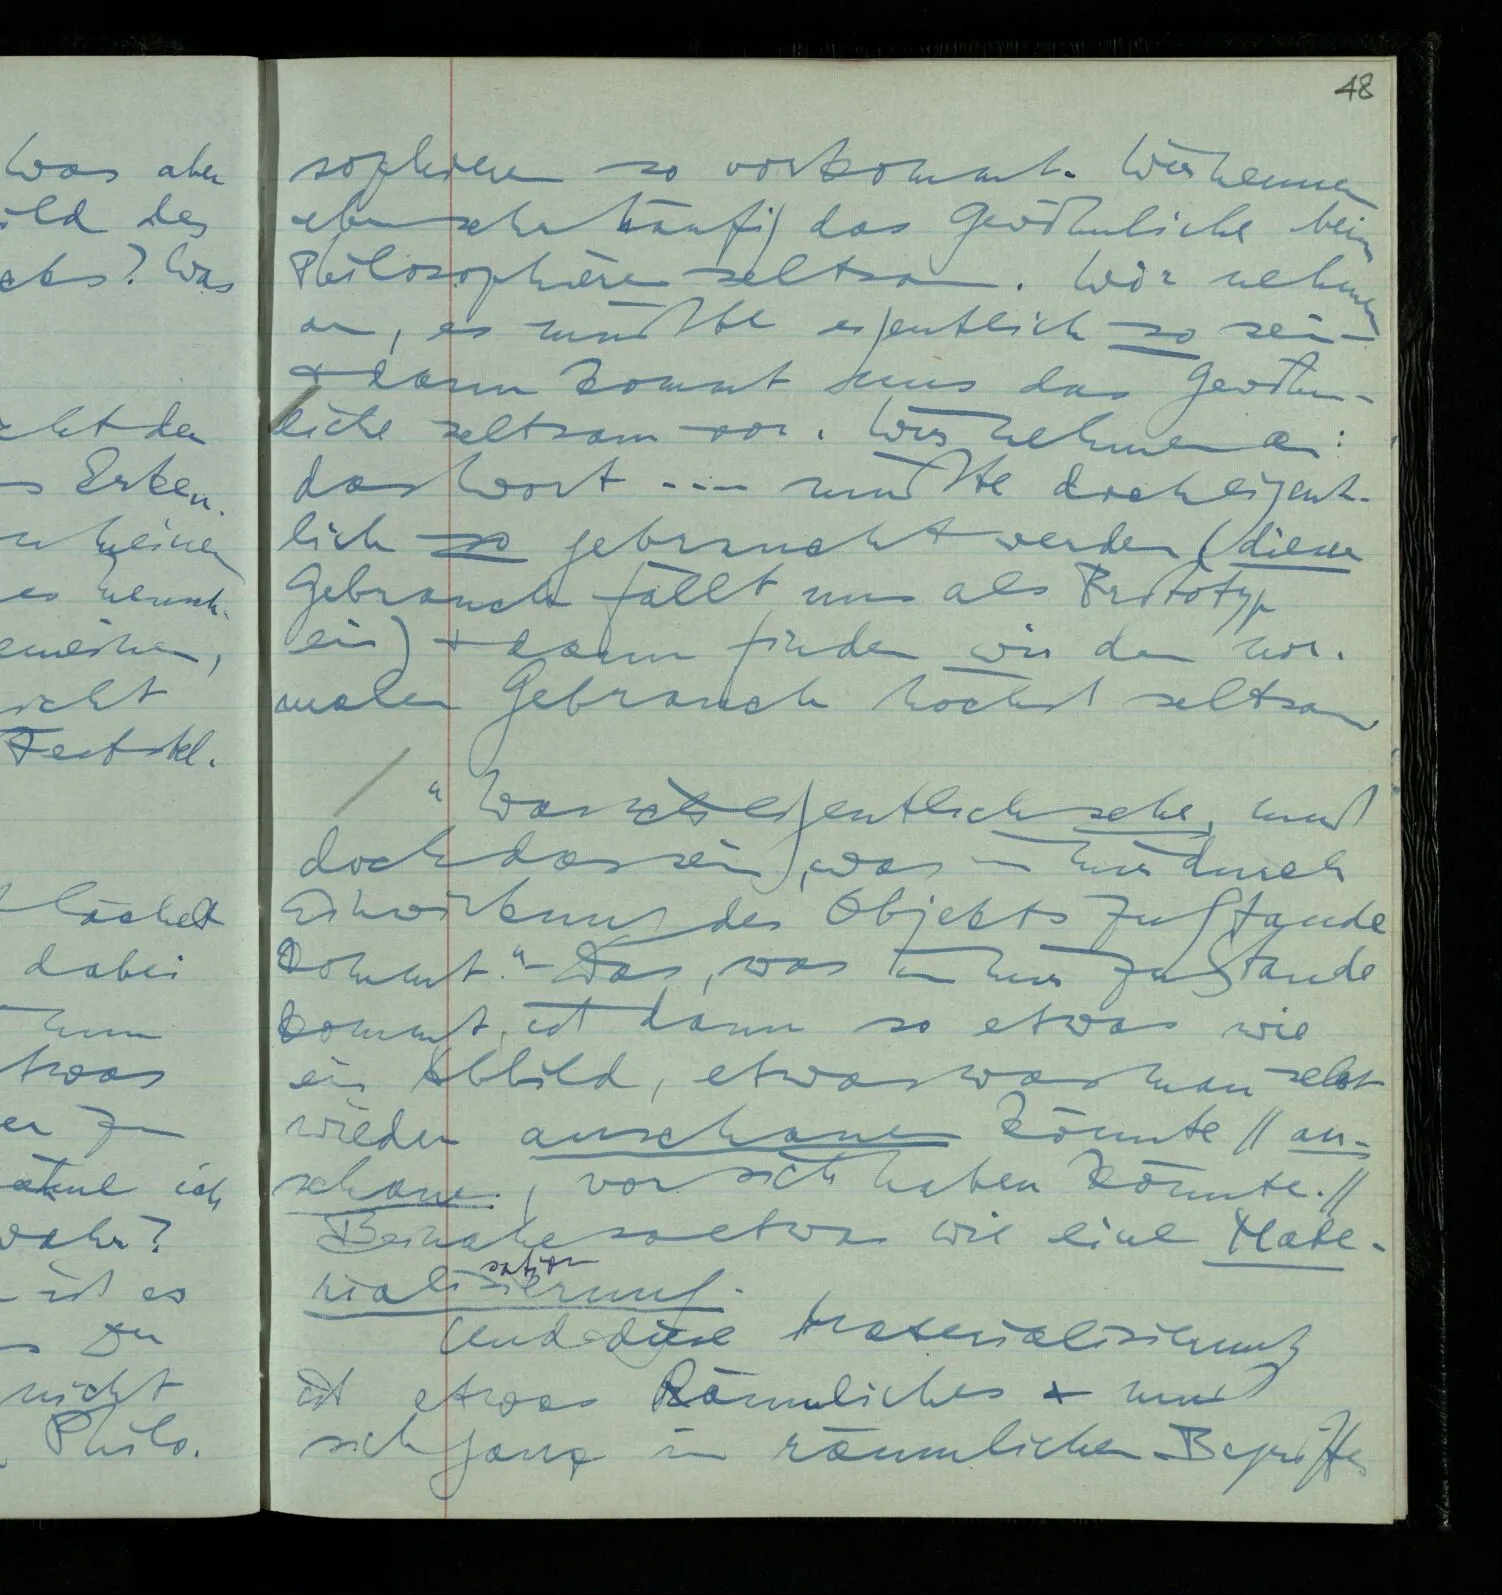 was aber
ild des
cks? Was
cht den
s Erken-
lächelt
dabei
twas
er zu
ich
wahr?
ist es
nicht
Philo-
48
sophieren so vorkommt. Wir nennen
eben sehr häufig das Gewöhnliche beim
Philosophieren seltsam. Wir nehmen
an, es müßte eigentlich so sein –
& dann kommt uns das Gewöhn-
liche seltsam vor. Wir nehmen an:
das Wort ---- müßte doch eigent-
lich so gebraucht werden (dieser
Gebrauch fällt uns als Prototyp
ein) & dann finden wir den nor-
malen Gebrauch höchst seltsam
"Was ich eigentlich sehe, muß
doch das sein, was in mir durch
Einwirkung des Objekts zustande
kommt." – Das, was in mir zustande
kommt, ist dann so etwas wie
ein Abbild, etwas was man selbst
wieder anschauen könnte // an-
schauen, vor sich haben könnte. //
Beinahe so etwas wie eine Mate-
sation
rialisierung.
Und diese Materialisierung
ist etwas Räumliches & muß
sich ganz in räumlichen Begriffen